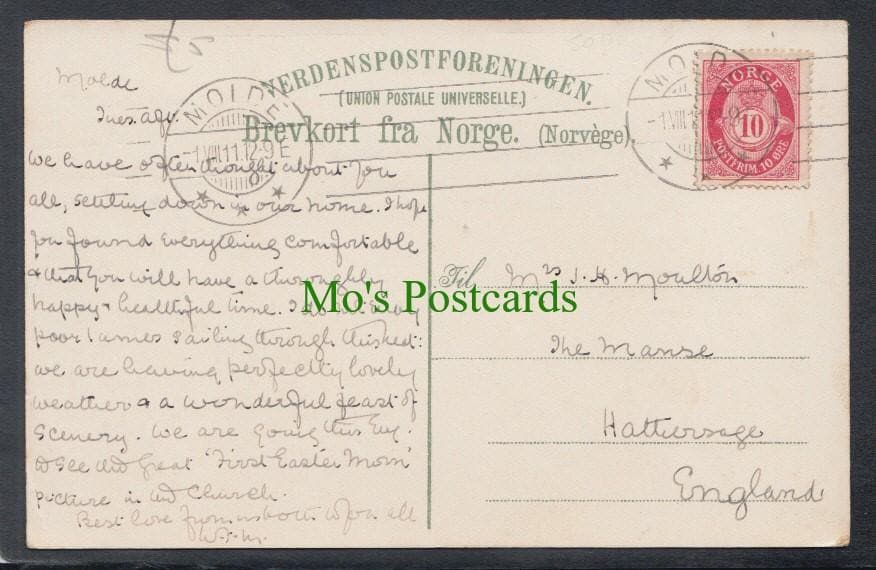 VERDENSPOSTFORENINGEN.
(UNION POSTALE UNIVERSELLE.)
Brevkort fra Norge. (Norvège).
MOLDE
-1.VIII.11.12-9 E
MOLDE
-1.VIII.11
NORGE
10
POSTFRIM. 10 ØRE
Molde
Tuesday.
We have often thought about you
all, settling down in our home. I hope
you found everything comfortable
& that you will have a thoroughly
happy & healthful time. I do
poor James sailing through this heat:
we are having perfectly lovely
weather & a wonderful feast of
scenery. We are going this Evg.
to see the great 'First Easter Morn'
picture in the Church.
Best love from us both to you all
W.F.M.
Til
Mrs J. H. Moulton
The Manse
Hathersage
England
Mo's Postcards